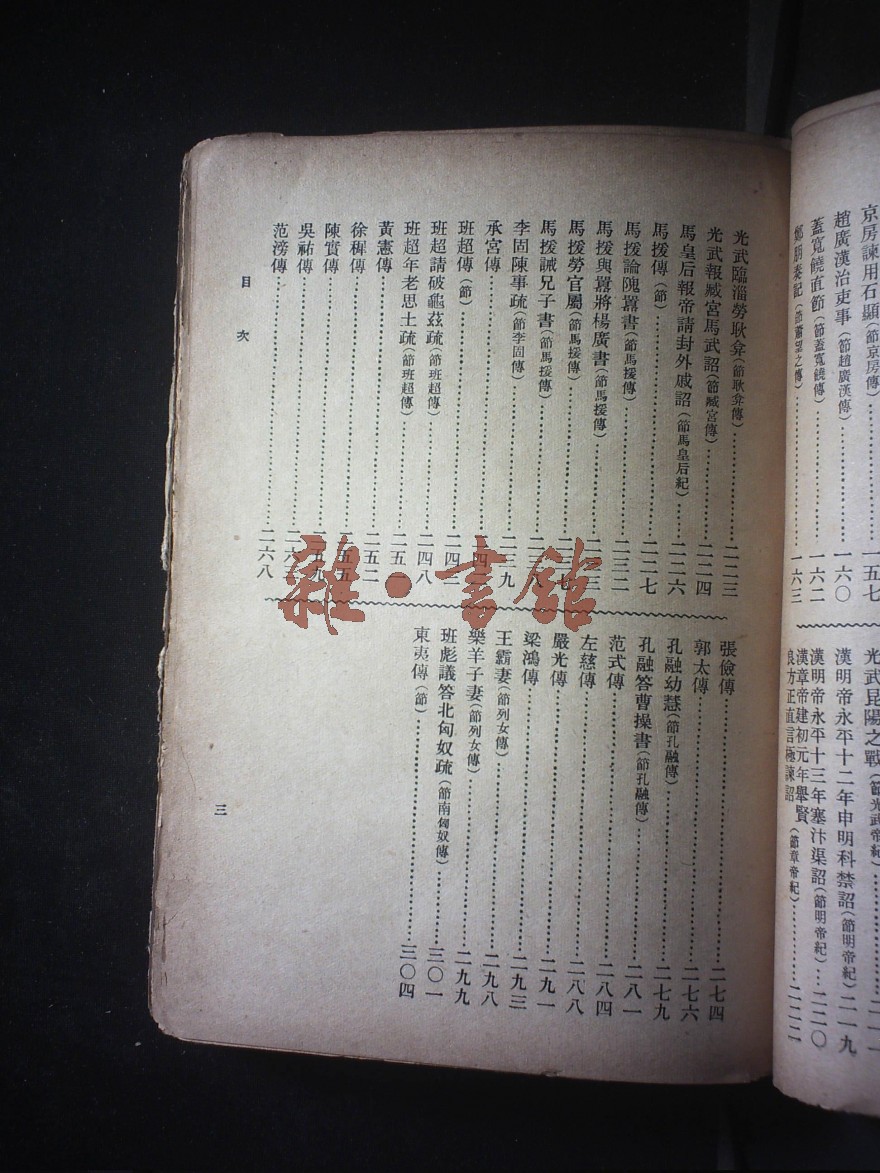 京房諫用石顯(節京房傳)⋯⋯一五七
趙廣漢治吏事(節趙廣漢傳)⋯⋯一六〇
蓋寬饒直節(節蓋寬饒傳)⋯⋯一六二
鄭朋奏記(節蕭望之傳)⋯⋯一六三
光武昆陽之戰(節光武帝紀)
漢明帝永平十二年申明科禁詔(節明帝紀)二一九
漢明帝永平十三年塞汴渠詔(節明帝紀)⋯二二〇
漢章帝建初元年舉賢
良方正直言極諫詔(節章帝紀)⋯⋯二二二
光武臨淄勞耿弇(節耿弇傳)⋯⋯二二三
光武報臧宮馬武詔(節臧宮傳)⋯⋯二二四
馬皇后報帝請封外戚詔(節馬皇后紀)⋯⋯二二六
馬援傳(節)⋯⋯二二七
馬援論隗囂書(節馬援傳)⋯⋯二三二
馬援與囂將楊廣書(節馬援傳)⋯⋯二三三
馬援勞官屬(節馬援傳)⋯⋯二三七
馬援誡兄子書(節馬援傳)⋯⋯二三八
李固陳事疏(節李固傳)⋯⋯二三九
承宮傳⋯⋯二四
班超傳(節)⋯⋯二四三
班超請破龜茲疏(節班超傳)⋯⋯二四八
班超年老思土疏(節班超傳)⋯⋯二五一
黃憲傳⋯⋯二五二
徐稺傳⋯⋯二五五
陳寔傳⋯⋯二五九
吳祐傳⋯⋯二六三
范滂傳⋯⋯二六八
張儉傳⋯⋯二七四
郭太傳⋯⋯二七六
孔融幼慧(節孔融傳)⋯⋯二七九
孔融答曹操書(節孔融傳)⋯⋯二八一
范式傳⋯⋯二八四
左慈傳⋯⋯二八八
嚴光傳⋯⋯二九一
梁鴻傳⋯⋯二九三
王霸妻(節列女傳)⋯⋯二九八
樂羊子妻(節列女傳)⋯⋯二九九
班彪議答北匈奴疏(節南匈奴傳)⋯⋯三〇一
東夷傳(節)⋯⋯三〇四
目次
三
雜·書館